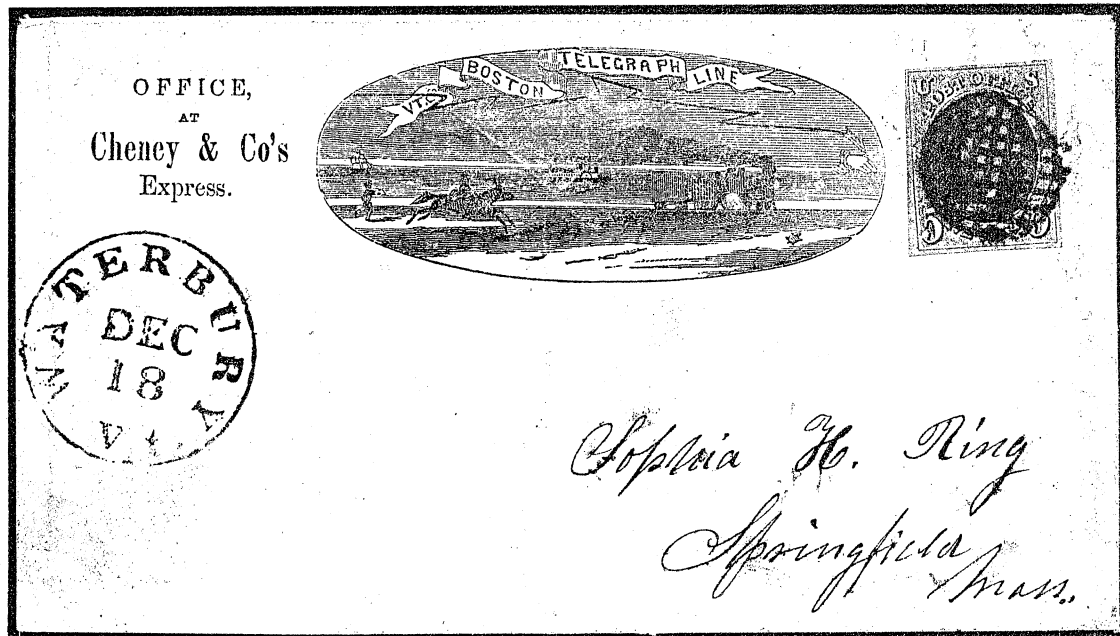 OFFICE,
AT
Cheney & Co's
Express.
VT. & BOSTON TELEGRAPH LINE
U S
POST OFFICE
5 5
WATERBURY
DEC
18
Sophia H. Ring
Springfield
Mass.